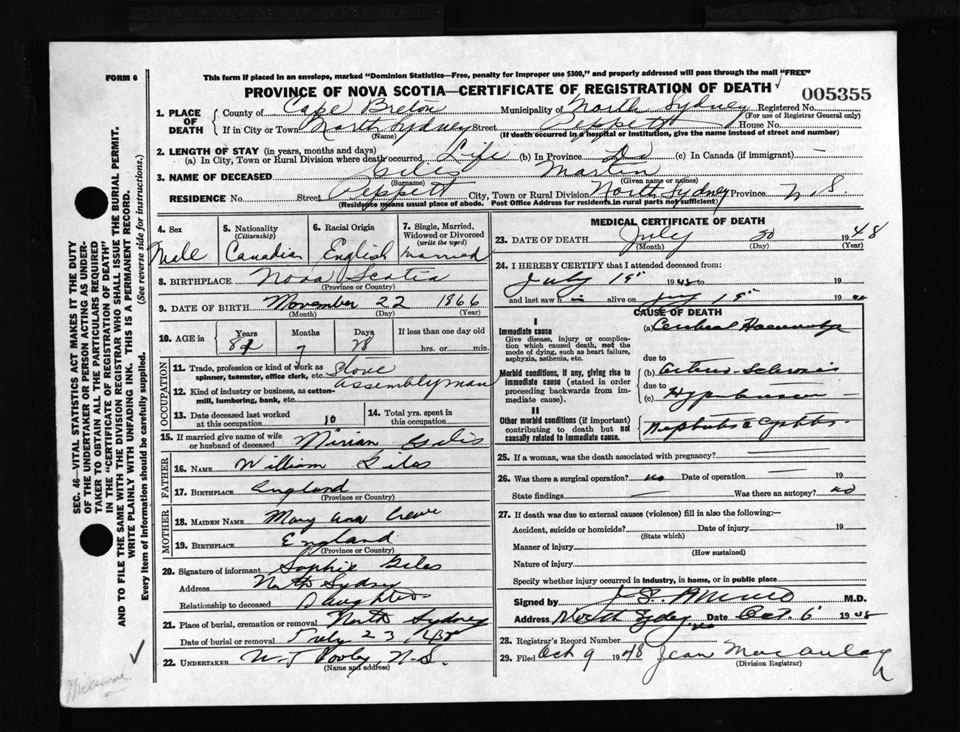 FORM 6
This form if placed in an envelope, marked "Dominion Statistics—Free, penalty for improper use $300," and properly addressed will pass through the mail "FREE"
PROVINCE OF NOVA SCOTIA—CERTIFICATE OF REGISTRATION OF DEATH
005355
1. PLACE OF DEATH
County of Cape Breton Municipality of North Sydney Registered No.
(For use of Registrar General only)
If in City or Town North Sydney Street Peppett House No.
(Name) (If death occurred in a hospital or institution, give the name instead of street and number)
2. LENGTH OF STAY (in years, months and days)
(a) In City, Town or Rural Division where death occurred Life (b) In Province Do (c) In Canada (if immigrant) —
3. NAME OF DECEASED Giles Martin
(Surname) (Given name or names)
RESIDENCE No. Street Peppett City, Town or Rural Division North Sydney Province N S
(Residence means usual place of abode. Post Office Address for residents in rural parts not sufficient)
4. Sex
Male
5. Nationality
(Citizenship)
Canadian
6. Racial Origin
English
7. Single, Married, Widowed or Divorced
(write the word)
Married
8. BIRTHPLACE Nova Scotia
(Province or Country)
9. DATE OF BIRTH November 22 1866
(Month) (Day) (Year)
10. AGE in
Years Months Days If less than one day old
7 28 hrs. or min.
OCCUPATION
11. Trade, profession or kind of work as spinner, teamster, office clerk, etc. Stove
12. Kind of industry or business, as cotton-mill, lumbering, bank, etc. Assemblyman
13. Date deceased last worked at this occupation 10
14. Total yrs. spent in this occupation
15. If married give name of wife or husband of deceased Mirian Giles
FATHER
16. NAME William Giles
17. BIRTHPLACE England
(Province or Country)
MOTHER
18. MAIDEN NAME Mary Ann Crewe
19. BIRTHPLACE England
(Province or Country)
20. Signature of informant Sophie Giles
Address North Sydney
Relationship to deceased Daughter
21. Place of burial, cremation or removal North Sydney
Date of burial or removal July 23
22. UNDERTAKER W.T Dooley N.S.
(Name and address)
MEDICAL CERTIFICATE OF DEATH
23. DATE OF DEATH July 20 1948
(Month) (Day) (Year)
24. I HEREBY CERTIFY that I attended deceased from:
July 19 1948 to 19
and last saw h alive on July 19 19
CAUSE OF DEATH
I
Immediate cause
Give disease, injury or complication which caused death, not the mode of dying, such as heart failure, asphyxia, asthenia, etc.
(a) Cerebral
due to
Morbid conditions, if any, giving rise to immediate cause (stated in order proceeding backwards from immediate cause).
(b)
due to
(c)
II
Other morbid conditions (if important) contributing to death but not causally related to immediate cause.
25. If a woman, was the death associated with pregnancy?
26. Was there a surgical operation? no Date of operation 19
State findings Was there an autopsy? no
27. If death was due to external causes (violence) fill in also the following:—
Accident, suicide or homicide? Date of injury 19
(State which)
Manner of injury
(How sustained)
Nature of injury
Specify whether injury occurred in industry, in home, or in public place
Signed by M.D.
Address North Sydney Date Oct. 6 1948
28. Registrar's Record Number
29. Filed Oct 9 1948 Jean MacAulay
(Division Registrar)
SEC. 46—VITAL STATISTICS ACT MAKES IT THE DUTY
OF THE UNDERTAKER OR PERSON ACTING AS UNDER-
TAKER TO OBTAIN ALL THE PARTICULARS REQUIRED
IN THE "CERTIFICATE OF REGISTRATION OF DEATH"
AND TO FILE THE SAME WITH THE DIVISION REGISTRAR WHO SHALL ISSUE THE BURIAL PERMIT.
WRITE PLAINLY WITH UNFADING INK. THIS IS A PERMANENT RECORD.
Every item of information should be carefully supplied. (See reverse side for instructions.)